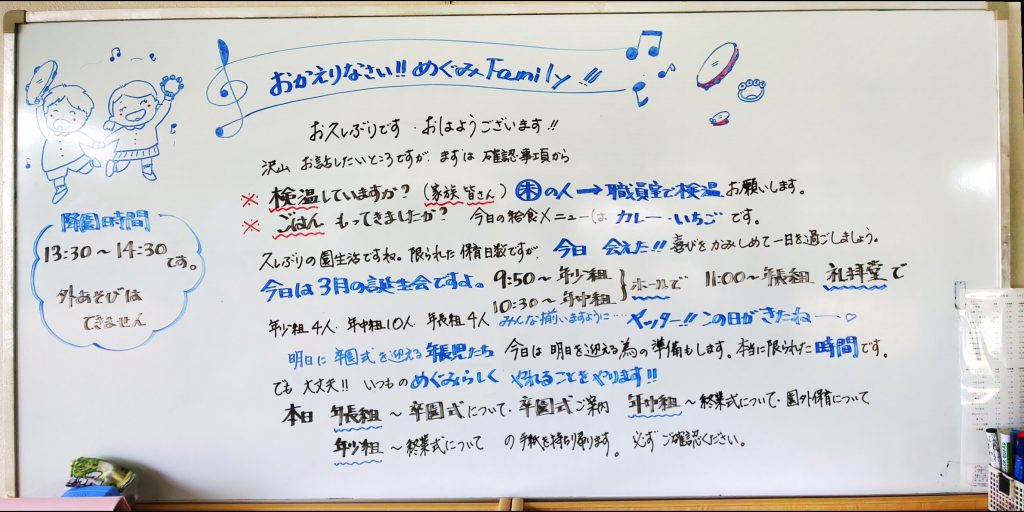 おかえりなさい!! めぐみFamily!!
お久しぶりです・おはようございます!!
沢山 お話したいところですが、まずは 確認事項から
※ 検温していますか? (家族 皆さん) 未の人→職員室で検温お願いします。
※ ごはん もってきましたか? 今日の給食メニューは カレー・いちご です。
久しぶりの園生活ですね。限られた保育日数ですが、今日 会えた!! 喜びをかみしめて一日を過ごしましょう。
今日は3月の誕生会ですよ。 9:50〜 年少組 10:30〜 年中組 } ホールで 11:00〜 年長組 礼拝堂で
年少組4人、年中組10人、年長組4人 みんな揃いますように… ヤッター!! この日がきたねー♡
明日に卒園式を迎える年長児たち 今日は明日を迎える為の準備もします。本当に限られた時間です。
でも 大丈夫!! いつものめぐみらしく やれることをやります!!
本日 年長組 〜 卒園式について・卒園式ご案内 年中組〜終業式について・園外保育について
年少組 〜終業式について の手紙を持ち帰ります。必ずご確認ください。
降園時間
13:30〜14:30
です。
外あそびは
できません